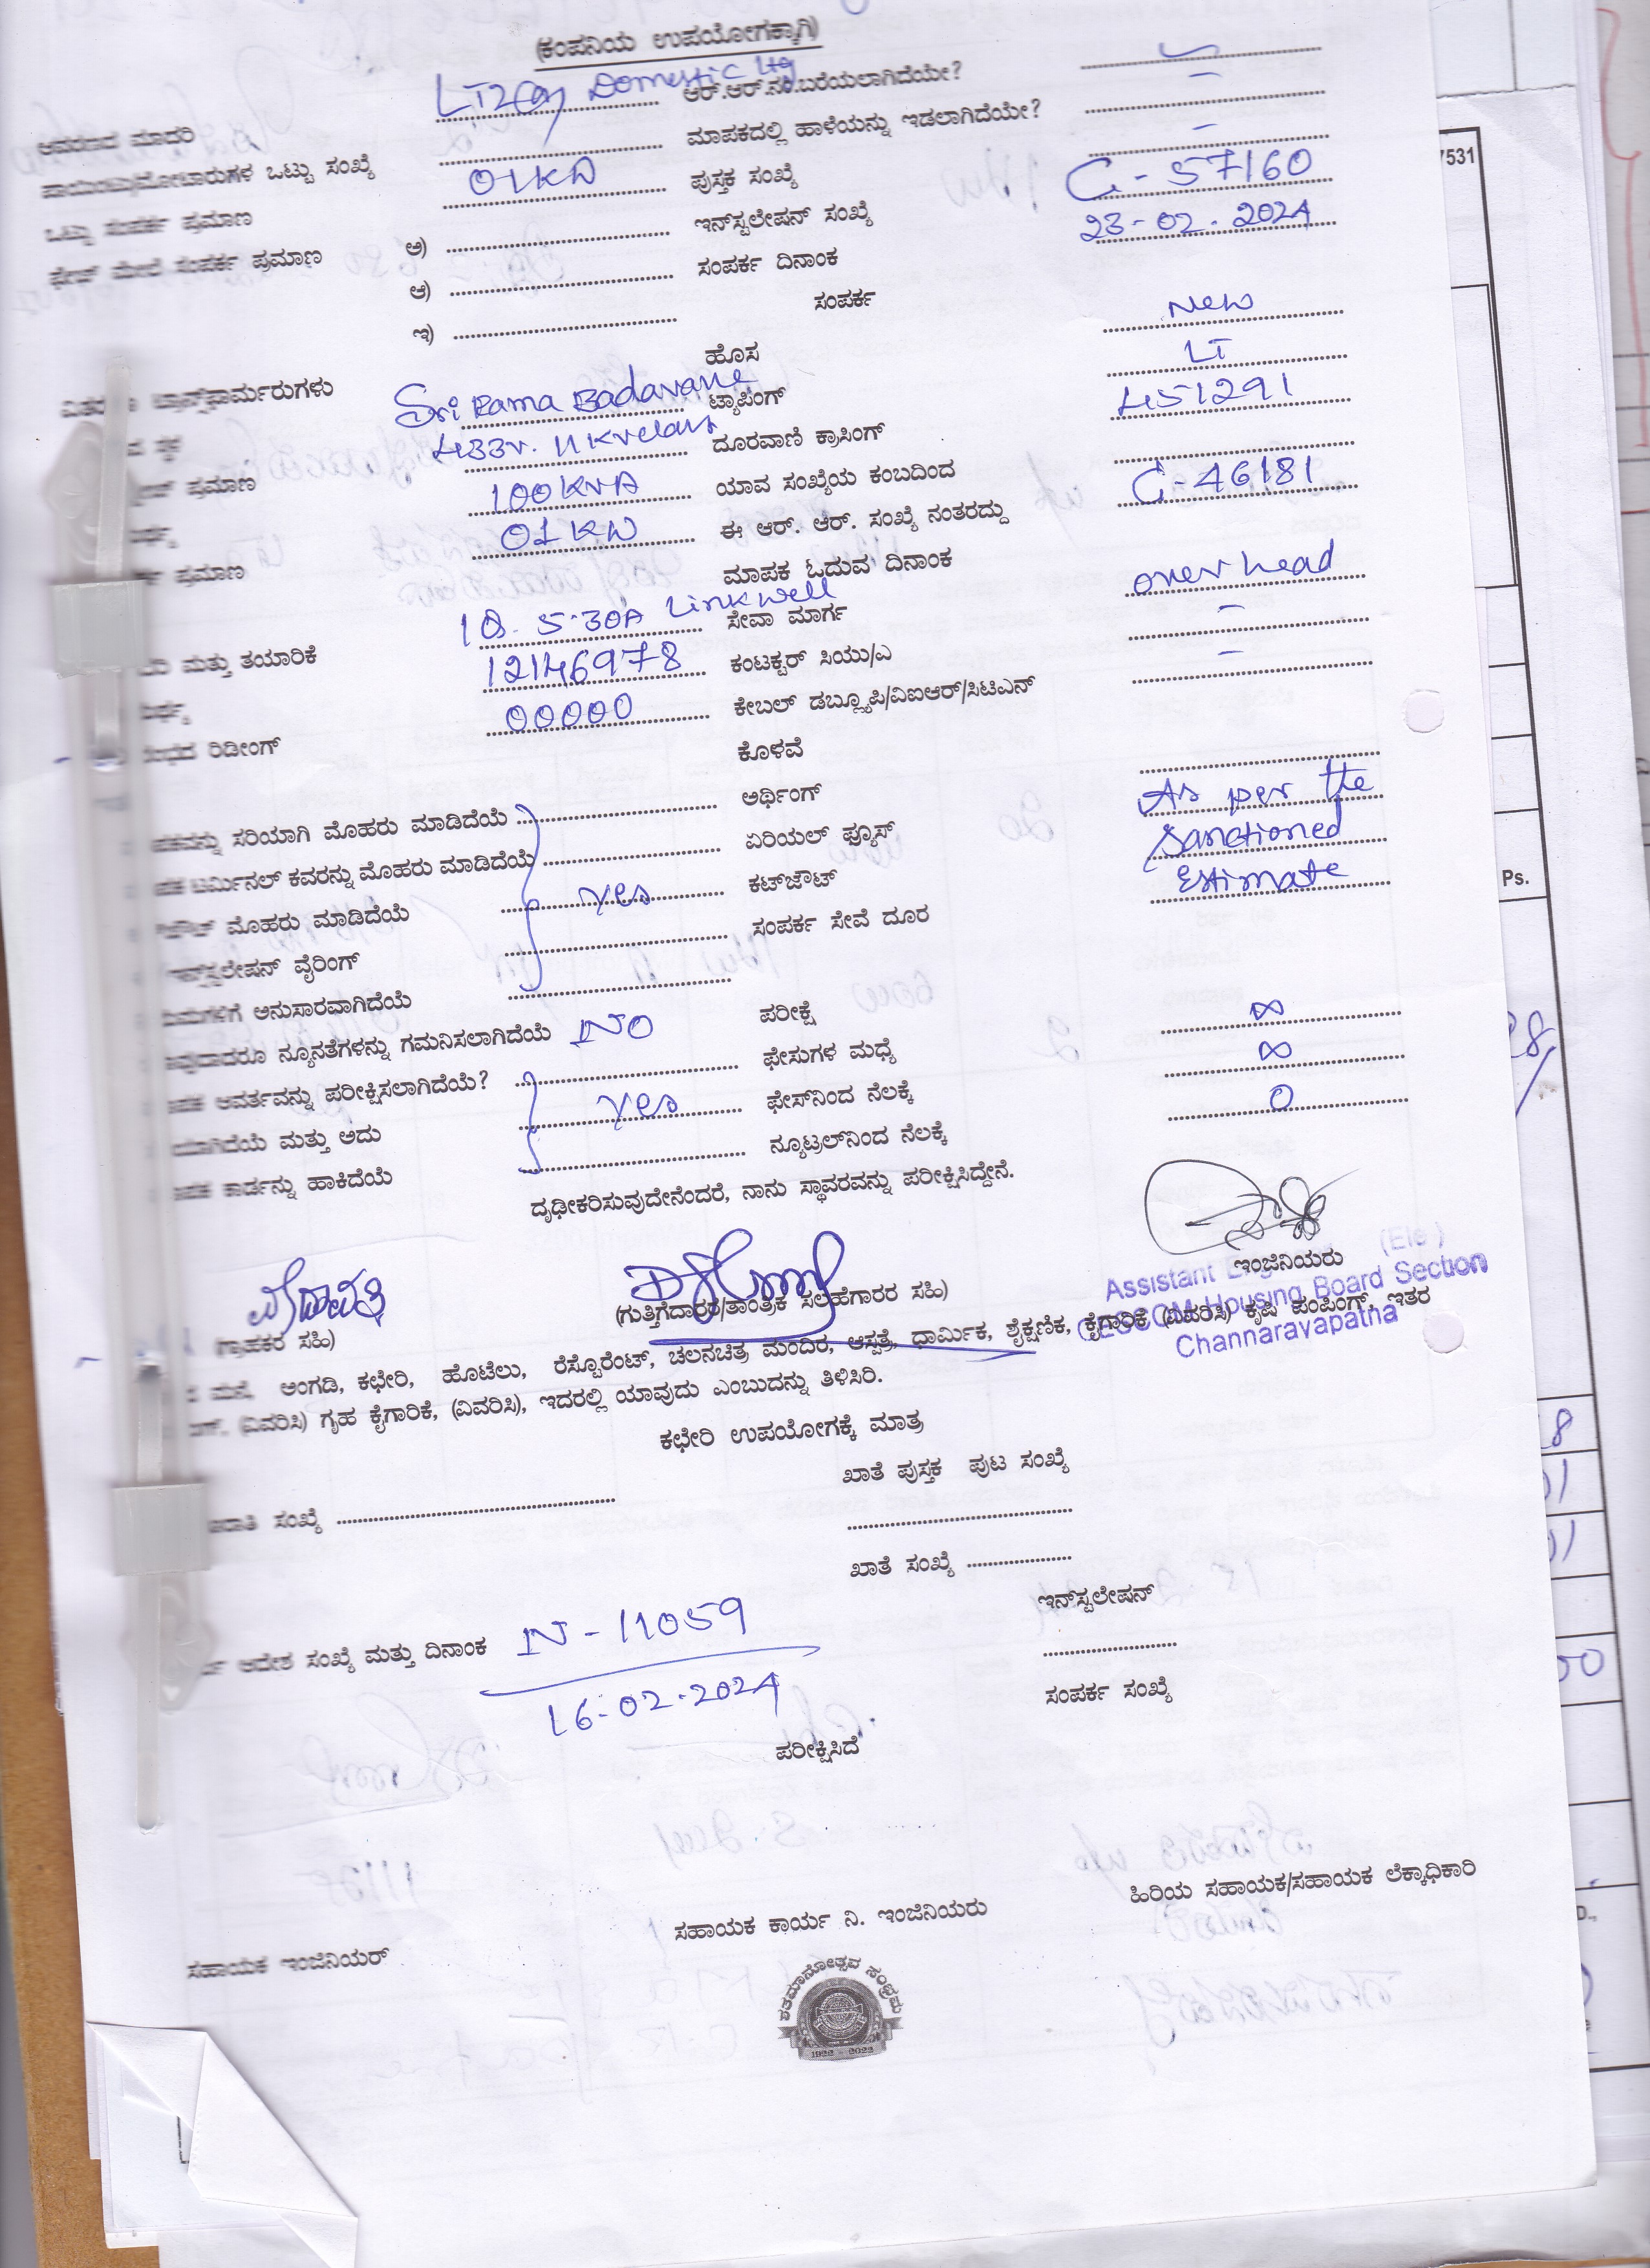 (ಕಂಪನಿಯ ಉಪಯೋಗಕ್ಕಾಗಿ)
ಆವರಣದ ಮಾದರಿ LT2(a) Domestic ltg ಆರ್.ಆರ್.ನಂ.ಬರೆಯಲಾಗಿದೆಯೇ?
ಪಾಯಿಂಟು/ಮೋಟಾರುಗಳ ಒಟ್ಟು ಸಂಖ್ಯೆ ಮಾಪಕದಲ್ಲಿ ಹಾಳೆಯನ್ನು ಇಡಲಾಗಿದೆಯೇ? –
ಒಟ್ಟು ಸಂಪರ್ಕ ಪ್ರಮಾಣ 01KW ಪುಸ್ತಕ ಸಂಖ್ಯೆ –
ಫೇಸ್ ಮೇಲೆ ಸಂಪರ್ಕ ಪ್ರಮಾಣ ಅ) ಇನ್‌ಸ್ಟಲೇಷನ್ ಸಂಖ್ಯೆ C-57160
ಆ) ಸಂಪರ್ಕ ದಿನಾಂಕ 23-02-2024
ಇ) ಸಂಪರ್ಕ
ಹೊಸ New
ಟ್ರಾನ್ಸ್‌ಫಾರ್ಮರುಗಳು Sri Rama Badavane ಟ್ಯಾಪಿಂಗ್ LT
ಸ್ಥಳ 433v. 11kv ದೂರವಾಣಿ ಕ್ರಾಸಿಂಗ್ 451291
ಪ್ರಮಾಣ 100KVA ಯಾವ ಸಂಖ್ಯೆಯ ಕಂಬದಿಂದ
01KW ಈ ಆರ್. ಆರ್. ಸಂಖ್ಯೆ ನಂತರದ್ದು C-46181
ಪ್ರಮಾಣ ಮಾಪಕ ಓದುವ ದಿನಾಂಕ
ಮತ್ತು ತಯಾರಿಕೆ 1Ø. 5-30A Linkwell ಸೇವಾ ಮಾರ್ಗ over head
12146978 ಕಂಟಕ್ಟರ್ ಸಿಯು/ಎ –
ರಿಡೀಂಗ್ 00000 ಕೇಬಲ್ ಡಬ್ಲ್ಯೂಪಿ/ವಿಐಆರ್/ಸಿಟಿಎನ್ –
ಕೊಳವೆ
ಸರಿಯಾಗಿ ಮೊಹರು ಮಾಡಿದೆಯೆ ಅರ್ಥಿಂಗ್
ಟರ್ಮಿನಲ್ ಕವರನ್ನು ಮೊಹರು ಮಾಡಿದೆಯೆ ಏರಿಯಲ್ ಫ್ಯೂಸ್ As per the
ಮೊಹರು ಮಾಡಿದೆಯೆ yes ಕಟ್‌ಔಟ್ Sanctioned
ಇನ್‌ಸ್ಟಲೇಷನ್ ವೈರಿಂಗ್ ಸಂಪರ್ಕ ಸೇವೆ ದೂರ Estimate
ಅನುಸಾರವಾಗಿದೆಯೆ
ನ್ಯೂನತೆಗಳನ್ನು ಗಮನಿಸಲಾಗಿದೆಯೆ NO ಪರೀಕ್ಷೆ
ಆವರ್ತವನ್ನು ಪರೀಕ್ಷಿಸಲಾಗಿದೆಯೆ? ಫೇಸುಗಳ ಮಧ್ಯೆ ∞
ಮತ್ತು ಅದು yes ಫೇಸ್‌ನಿಂದ ನೆಲಕ್ಕೆ ∞
ಕಾರ್ಡನ್ನು ಹಾಕಿದೆಯೆ ನ್ಯೂಟ್ರಲ್‌ನಿಂದ ನೆಲಕ್ಕೆ 0
ದೃಢೀಕರಿಸುವುದೇನೆಂದರೆ, ನಾನು ಸ್ಥಾವರವನ್ನು ಪರೀಕ್ಷಿಸಿದ್ದೇನೆ.
(ಗ್ರಾಹಕರ ಸಹಿ) (ಗುತ್ತಿಗೆದಾರರ/ತಾಂತ್ರಿಕ ಸಲಹೆಗಾರರ ಸಹಿ) ಇಂಜಿನಿಯರು
Assistant Engineer (Ele)
CESCOM Housing Board Section
Channarayapatna
ಮನೆ, ಅಂಗಡಿ, ಕಛೇರಿ, ಹೊಟೆಲು, ರೆಸ್ಟೋರೆಂಟ್, ಚಲನಚಿತ್ರ ಮಂದಿರ, ಆಸ್ಪತ್ರೆ, ಧಾರ್ಮಿಕ, ಶೈಕ್ಷಣಿಕ, ಕೈಗಾರಿಕೆ (ವಿವರಿಸಿ) ಕೃಷಿ ಪಂಪಿಂಗ್, ಇತರ
(ವಿವರಿಸಿ) ಗೃಹ ಕೈಗಾರಿಕೆ, (ವಿವರಿಸಿ), ಇದರಲ್ಲಿ ಯಾವುದು ಎಂಬುದನ್ನು ತಿಳಿಸಿರಿ.
ಕಛೇರಿ ಉಪಯೋಗಕ್ಕೆ ಮಾತ್ರ
ಖಾತೆ ಪುಸ್ತಕ ಪುಟ ಸಂಖ್ಯೆ
ಸಂಖ್ಯೆ
ಖಾತೆ ಸಂಖ್ಯೆ
ಇನ್‌ಸ್ಟಲೇಷನ್
ಆದೇಶ ಸಂಖ್ಯೆ ಮತ್ತು ದಿನಾಂಕ N-11059
16-02-2024
ಸಂಪರ್ಕ ಸಂಖ್ಯೆ
ಪರೀಕ್ಷಿಸಿದೆ
ಸಹಾಯಕ ಇಂಜಿನಿಯರ್ ಸಹಾಯಕ ಕಾರ್ಯ ನಿ. ಇಂಜಿನಿಯರು ಹಿರಿಯ ಸಹಾಯಕ/ಸಹಾಯಕ ಲೆಕ್ಕಾಧಿಕಾರಿ
ಶತಮಾನೋತ್ಸವ ಸಂಭ್ರಮ
1922 - 2022
7531
Ps.